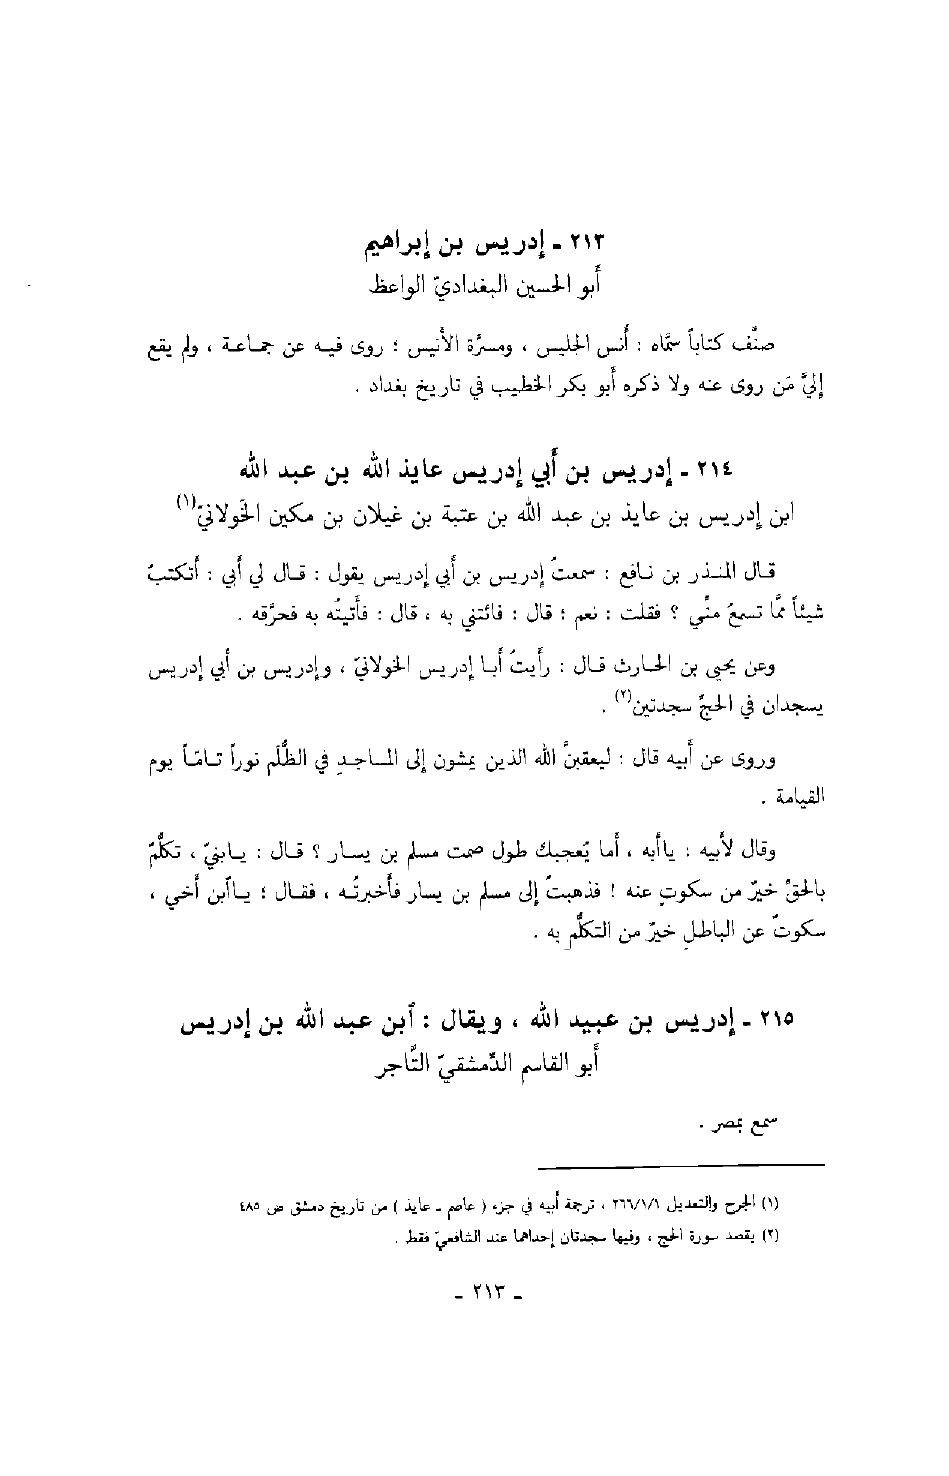 ٢١٣ ـ إدريس بن إبراهيم
أبو الحسين البغداديّ الواعظ
صنَّف كتاباً سمَّاه : أنس الجليس ، ومسرَّة الأنيس ؛ روى فيه عن جماعة ، ولم يقع
إليَّ مَن روى عنه ولا ذكره أبو بكر الخطيب في تاريخ بغداد .
٢١٤ ـ إدريس بن أبي إدريس عايذ الله بن عبد الله
ابن إدريس بن عايذ بن عبد الله بن عتبة بن غيلان بن مكين الخَولانيّ(١)
قال المنذر بن نافع : سمعتُ إدريس بن أبي إدريس يقول : قال لي أبي : أتكتبُ
شيئاً ممَّا تسمعُ منِّي ؟ فقلت : نعم ؛ قال : فائتني به ، قال : فأتيتُه به فحرَّقه .
وعن يحيى بن الحارث قال : رأيتُ أبا إدريس الخولانيّ ، وإدريس بن أبي إدريس
يسجدان في الحجِّ سجدتين(٢) .
وروى عن أبيه قال : ليعقبنَّ الله الذين يمشون إلى المساجدِ في الظُّلَم نوراً تامّاً يوم
القيامة .
وقال لأبيه : ياأبه ، أما يُعجبك طول صمت مسلم بن يسار ؟ قال : يابنيّ ، تكلُّمٌ
بالحقِّ خيرٌ من سكوتٍ عنه ! فذهبتُ إلى مسلم بن يسار فأخبرتُه ، فقال : ياٱبن أخي ،
سكوتٌ عن الباطلِ خيرٌ من التكلُّمِ به .
٢١٥ ـ إدريس بن عبيد الله ، ويقال : ٱبن عبد الله بن إدريس
أبو القاسم الدِّمشقيّ التَّاجر
سمع بمصر .
(١) الجرح والتعديل ٢٦٦/١/١ ، ترجمة أبيه في جزء ( عاصم ـ عايذ ) من تاريخ دمشق ص ٤٨٥
(٢) يقصد سورة الحج ، وفيها سجدتان إحداهما عند الشافعيّ فقط .
ـ ٢١٣ ـ